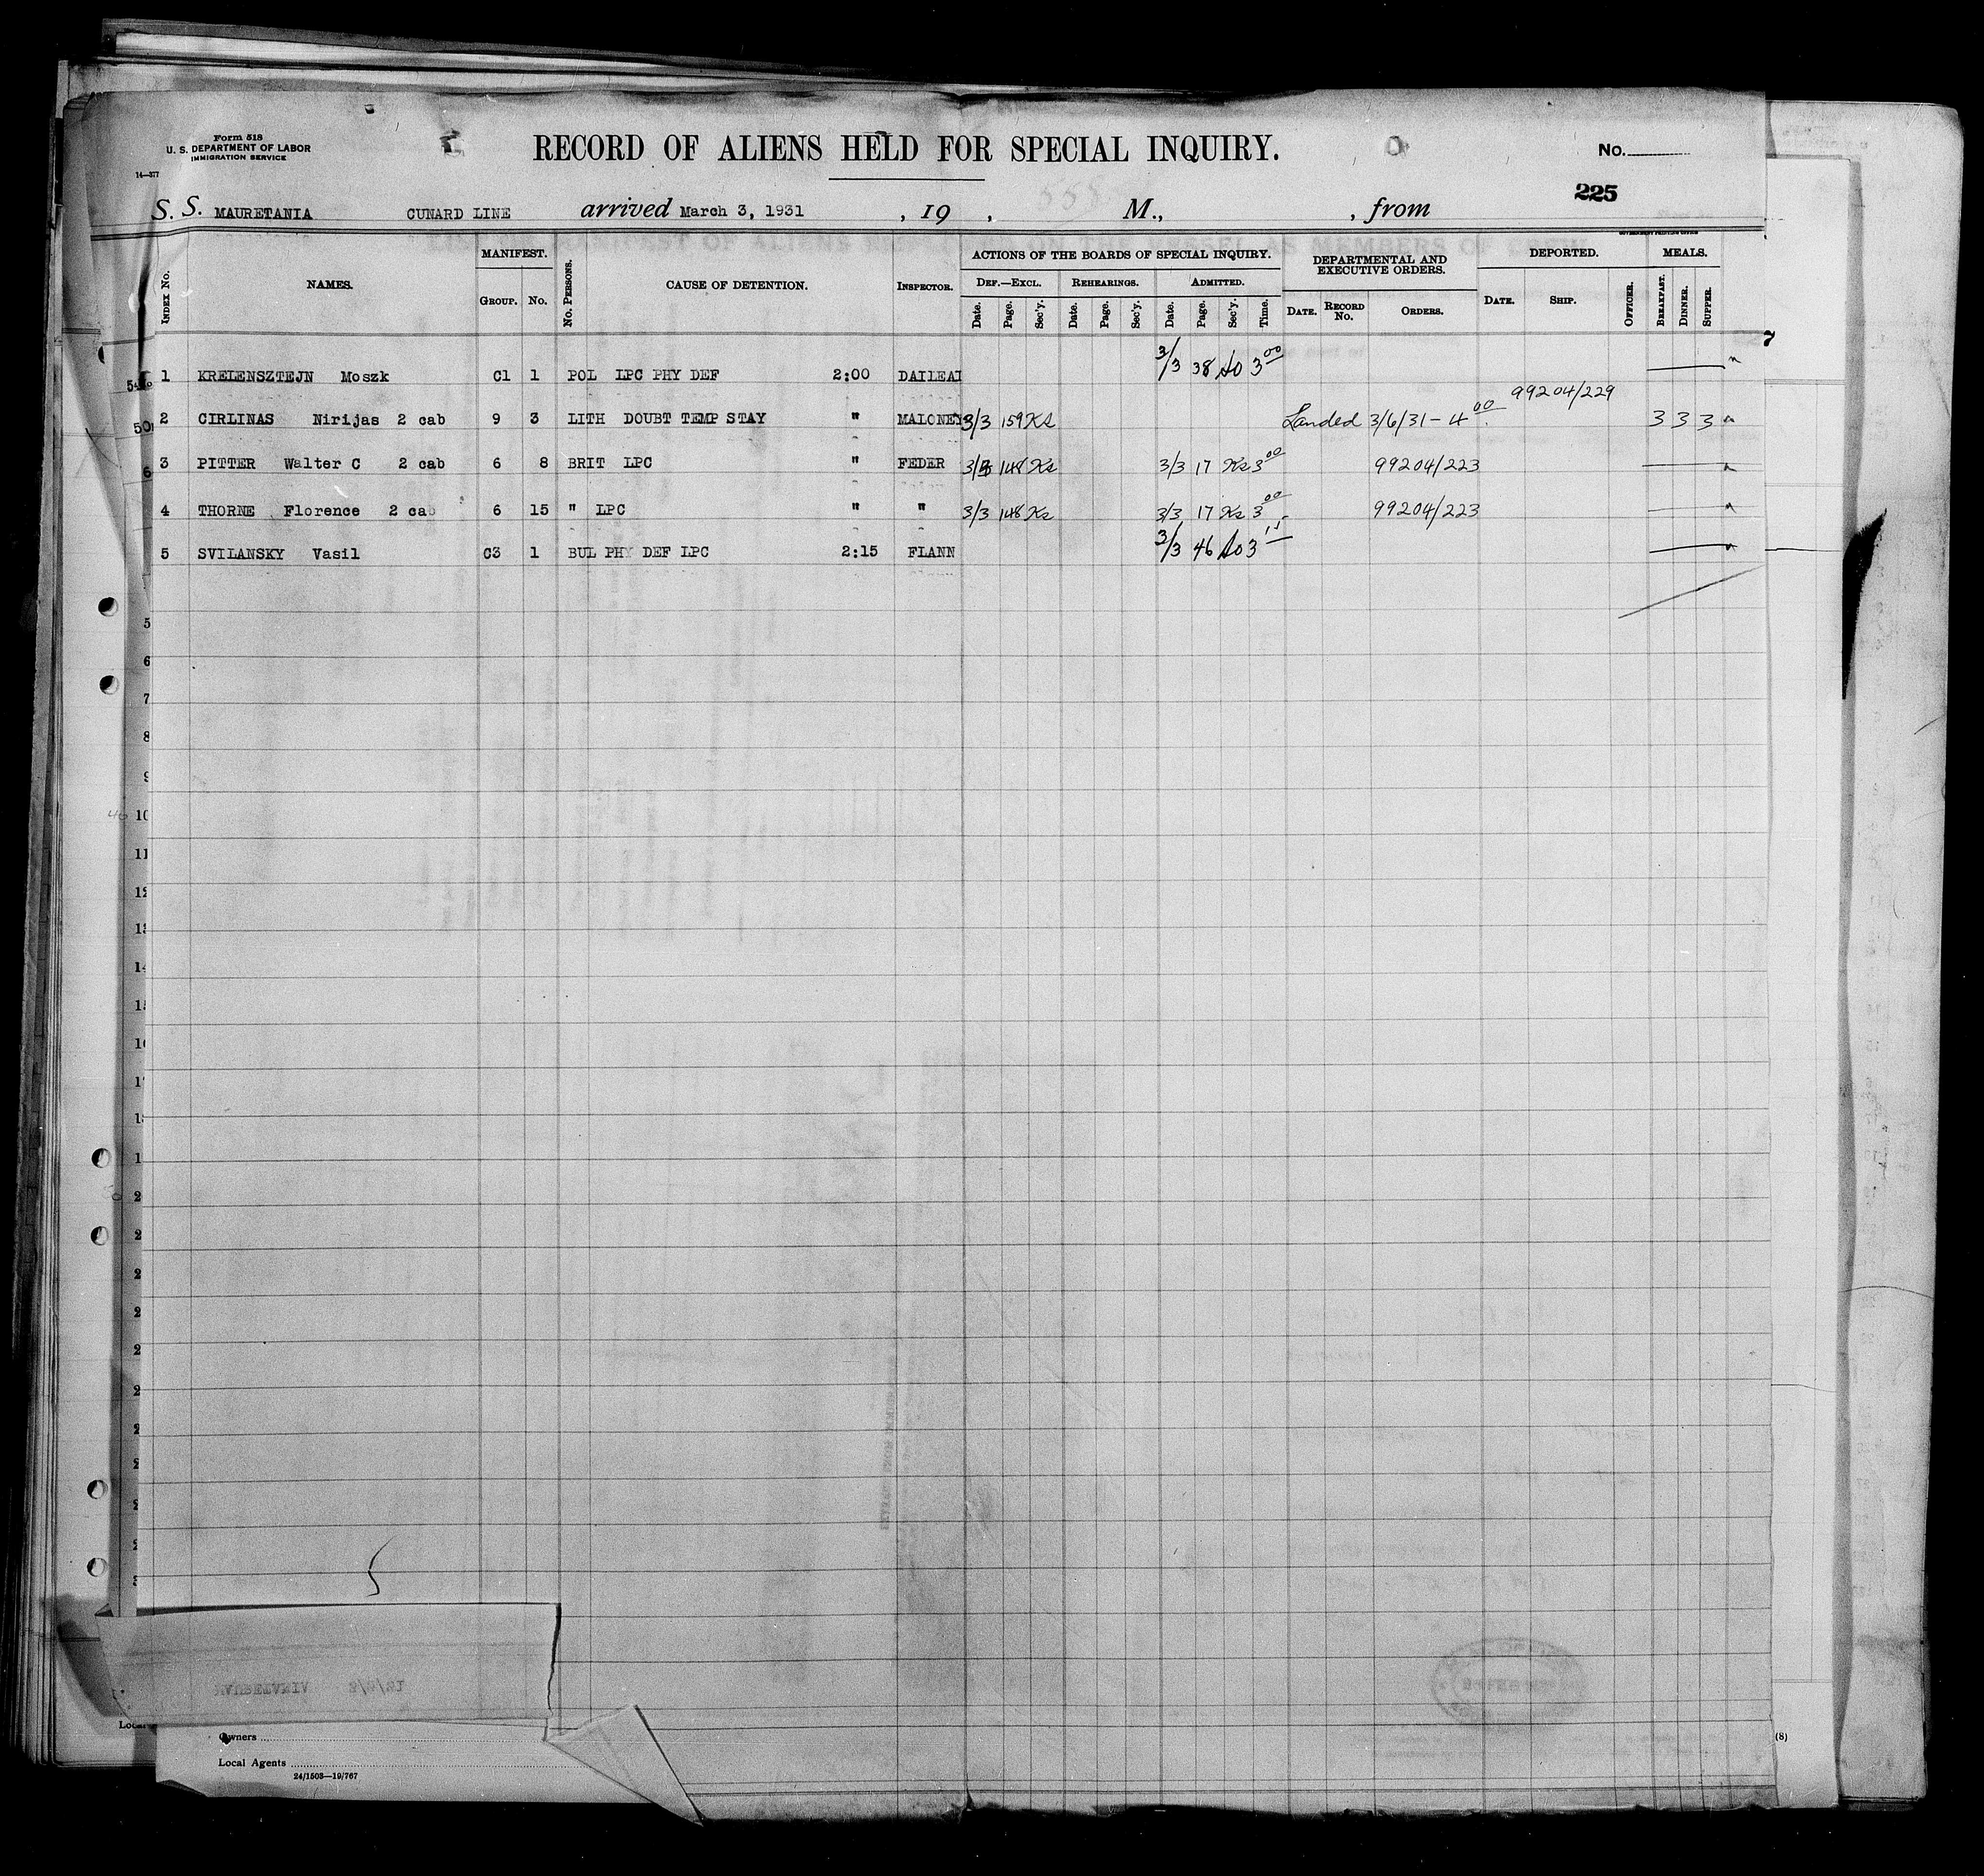 Form 518
U. S. DEPARTMENT OF LABOR
IMMIGRATION SERVICE
14—377
RECORD OF ALIENS HELD FOR SPECIAL INQUIRY.
No.
225
S. S. MAURETANIA CUNARD LINE arrived March 3, 1931 , 19 , M., , from
GOVERNMENT PRINTING OFFICE
INDEX No. NAMES. MANIFEST. GROUP. No. No. PERSONS. CAUSE OF DETENTION. INSPECTOR.
ACTIONS OF THE BOARDS OF SPECIAL INQUIRY. DEF.—EXCL. Date. Page. Sec'y. REHEARINGS. Date. Page. Sec'y. ADMITTED. Date. Page. Sec'y. Time.
DEPARTMENTAL AND EXECUTIVE ORDERS. DATE. RECORD No. ORDERS.
DEPORTED. DATE. SHIP. OFFICER. MEALS. BREAKFAST. DINNER. SUPPER.
7
1 KRELENSZTEJN Moszk C1 1 POL LPC PHY DEF 2:00 DAILEA 3/3 38 3 00
99204/229
2 CIRLINAS Nirijas 2 cab 9 3 LITH DOUBT TEMP STAY " MALONEY 3/3 159 Ks Landed 3/6/31 – 4 00 3 3 3
3 PITTER Walter C 2 cab 6 8 BRIT LPC " FEDER 3/3 148 Ks 3/3 17 Ks 3 00 99204/223
4 THORNE Florence 2 cab 6 15 " LPC " " 3/3 148 Ks 3/3 17 Ks 3 00 99204/223
5 SVILANSKY Vasil C3 1 BUL PHY DEF LPC 2:15 FLANN 3/3 46 3 15
5
6
7
8
9
10
11
12
14
Owners
Local Agents
24/1503—19/767
(8)